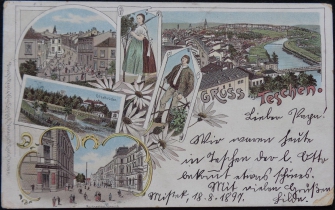 Gruss aus Teschen.
Lieber Papa.
Wir waren heute
in Teschen der l. Otto
bekam etwas
Mit vielen Grüßen
Mistek, 18-8-1897. Hilde.